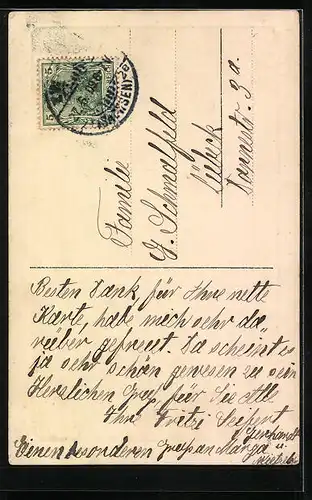 5 5
(SACHSEN)
Familie
G. Schmalfeld
Lübeck
Tannestr. 3a.
Besten Dank, für Ihre nette
Karte, habe mich sehr da
rüber gefreut. Da scheint es
ja sehr schön gewesen zu sein
Herzlichen Gruß für Sie Alle
Ihre Fritzi Seifert
Einen besonderen Gruß an Marga u.